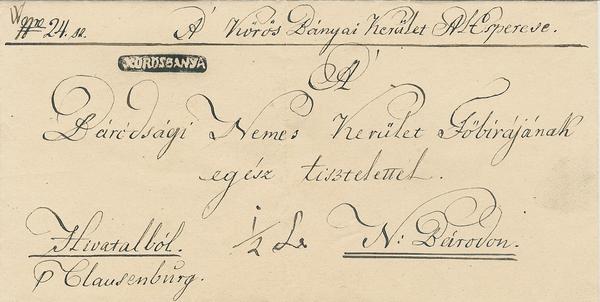 24. A' Körös Bányai Kerület Al Esperese.
KÖRÖSBANYA
A'
Báródsági Nemes Kerület Főbírájának
egész tisztelettel.
Hivatalból. 1/2 N: Báródon.
p Clausenburg.